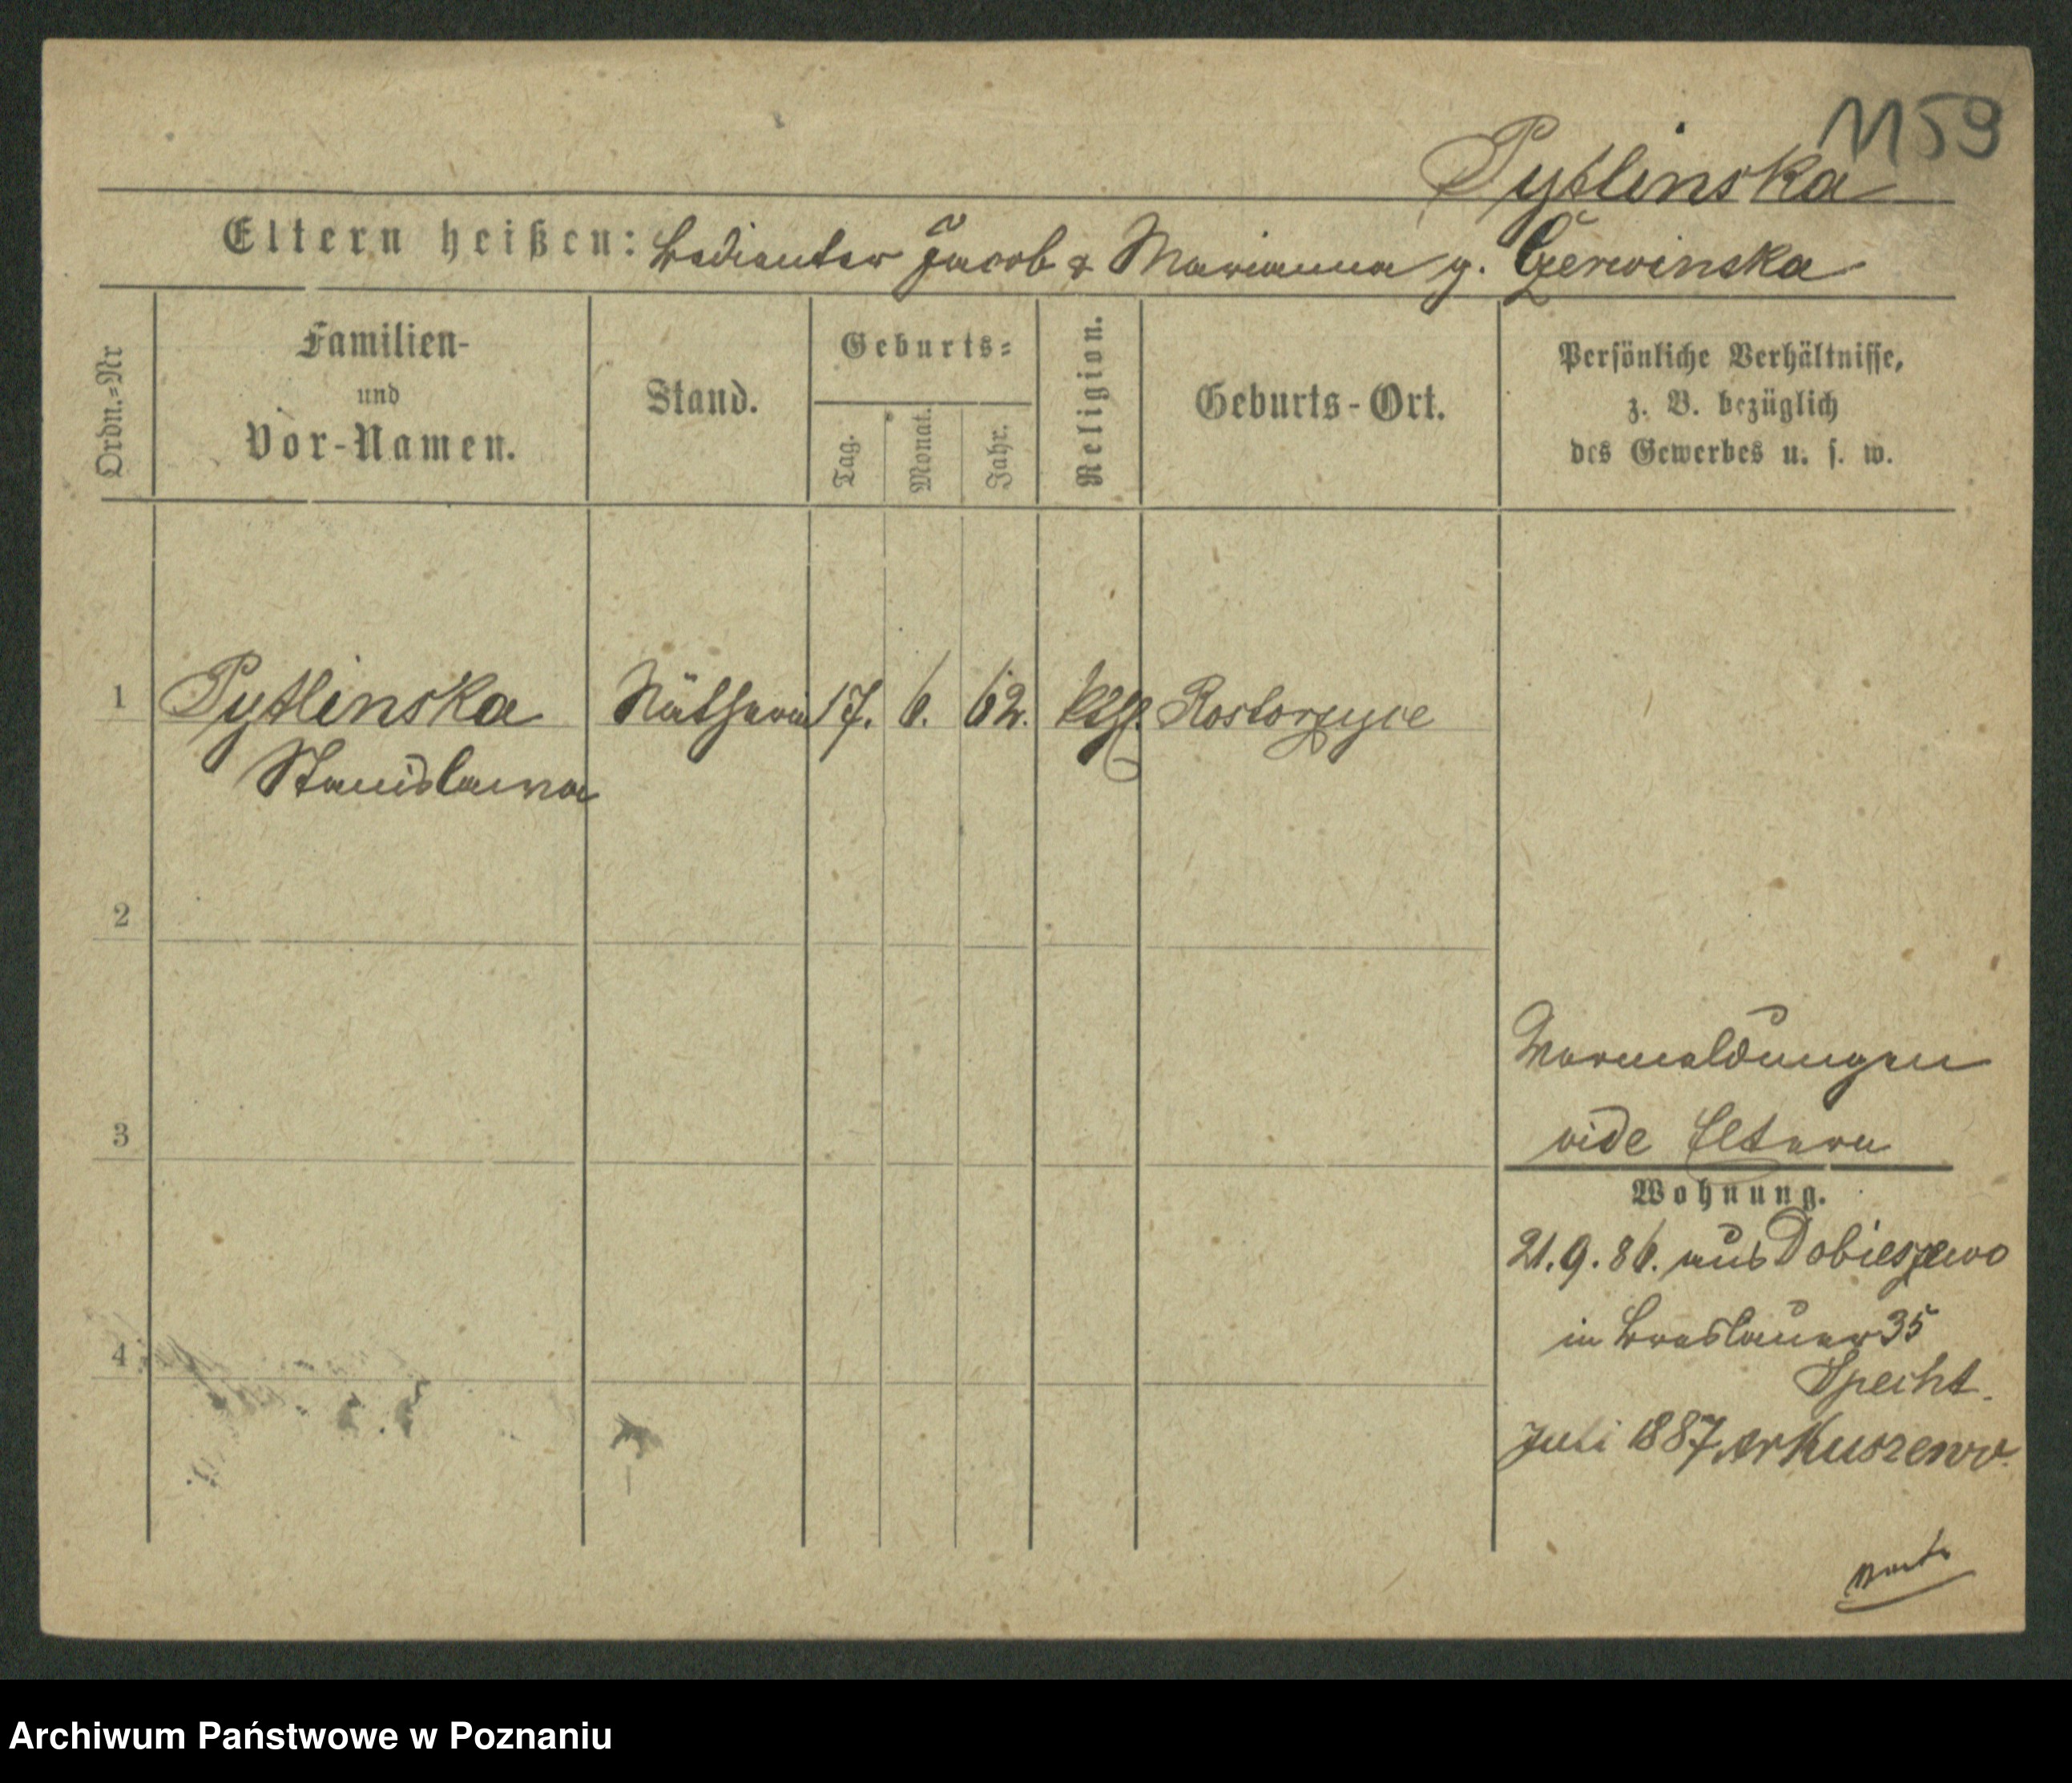 1159
Pytlinska
Eltern heißen: Bedienter Jacob & Marianna g. Gerwinska
Ordn.=Nr
Familien-
und
Vor-Namen.
Stand.
Geburts=
Tag.
Monat.
Jahr.
Religion.
Geburts-Ort.
Persönliche Verhältnisse,
z. B. bezüglich
des Gewerbes u. s. w.
1 Pytlinska Nätherin 17. 6. 62. kth. Rostorzyce
Stanislawa
2
Vormeldungen
3 vide Eltern
Wohnung.
21.9.86. aus Dobieszewo
in Breslauer 35
4 Specht.
Juli 1887. Arkuszewo.
Archiwum Państwowe w Poznaniu